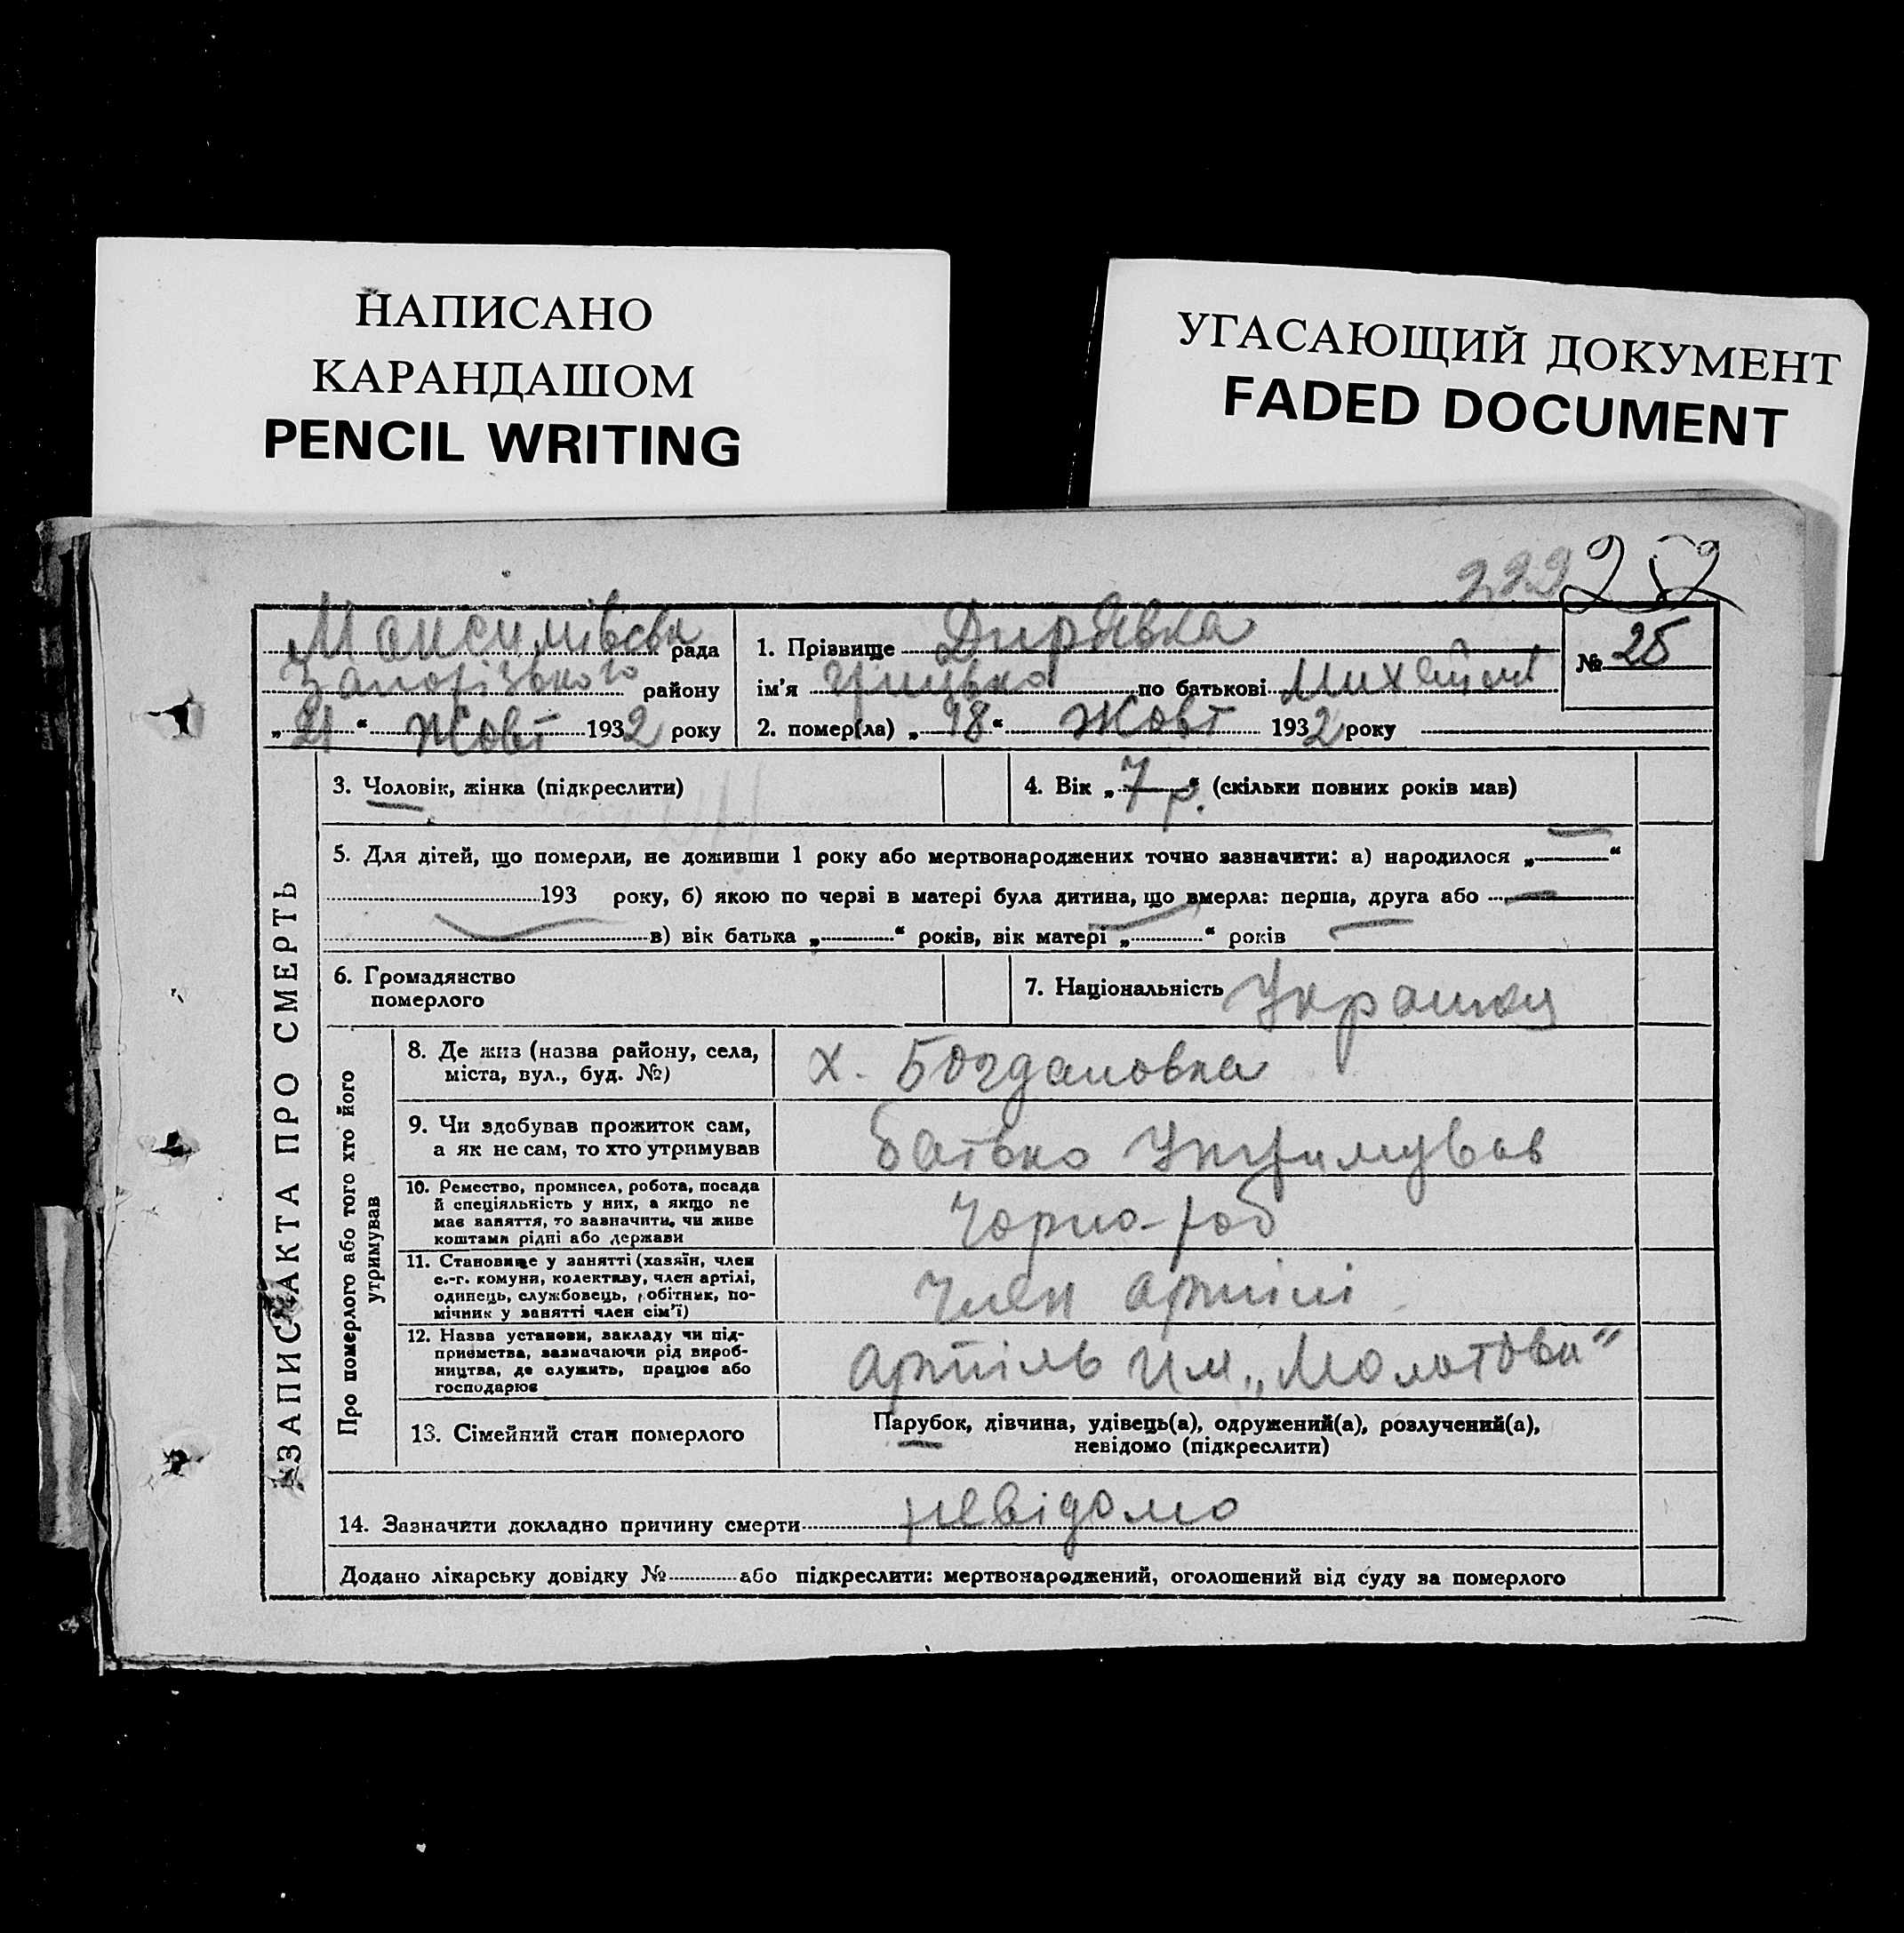 НАПИСАНО
КАРАНДАШОМ
PENCIL WRITING
УГАСАЮЩИЙ ДОКУМЕНТ
FADED DOCUMENT
222 252
Максимівска рада
Запорізького району
„21“ Жовт 1932 року
1. Прізвище Дирявка
№ 25
ім’я Грицько по батькові Михайлов
2. помер(ла) „18“ Жовт 1932 року
ЗАПИС АКТА ПРО СМЕРТЬ
3. Чоловік, жінка (підкреслити)
4. Вік „7 р.“ (скільки повних років мав)
5. Для дітей, що померли, не доживши 1 року або мертвонароджених точно зазначити: а) народилося „—“
193 року, б) якою по черві в матері була дитина, що вмерла: перша, друга або —
в) вік батька „ “ років, вік матері „ “ років
6. Громадянство
померлого
7. Національність
Про померлого або того хто його
утримував
8. Де жиз (назва району, села,
міста, вул., буд. №)
х. Богдановка
9. Чи здобував прожиток сам,
а як не сам, то хто утримував
батько утримував
10. Ремество, промисел, робота, посада
й спеціяльність у них, а якщо не
має заняття, то зазначити, чи живе
коштами рідні або держави
Чорно-роб
11. Становище у занятті (хазяїн, член
с.-г. комуни, колективу, член артілі,
одинець, службовець, робітник, по-
мічник у занятті член сім’ї)
Член артілі
12. Назва установи, закладу чи під-
приємства, зазначаючи рід вироб-
ництва, де служить, працює або
господарює
Артіль им. „Молотова“
13. Сімейний стан померлого
Парубок, дівчина, удівець(а), одружений(а), розлучений(а),
невідомо (підкреслити)
14. Зазначити докладно причину смерти невідомо
Додано лікарську довідку № або підкреслити: мертвонароджений, оголошений від суду за померлого